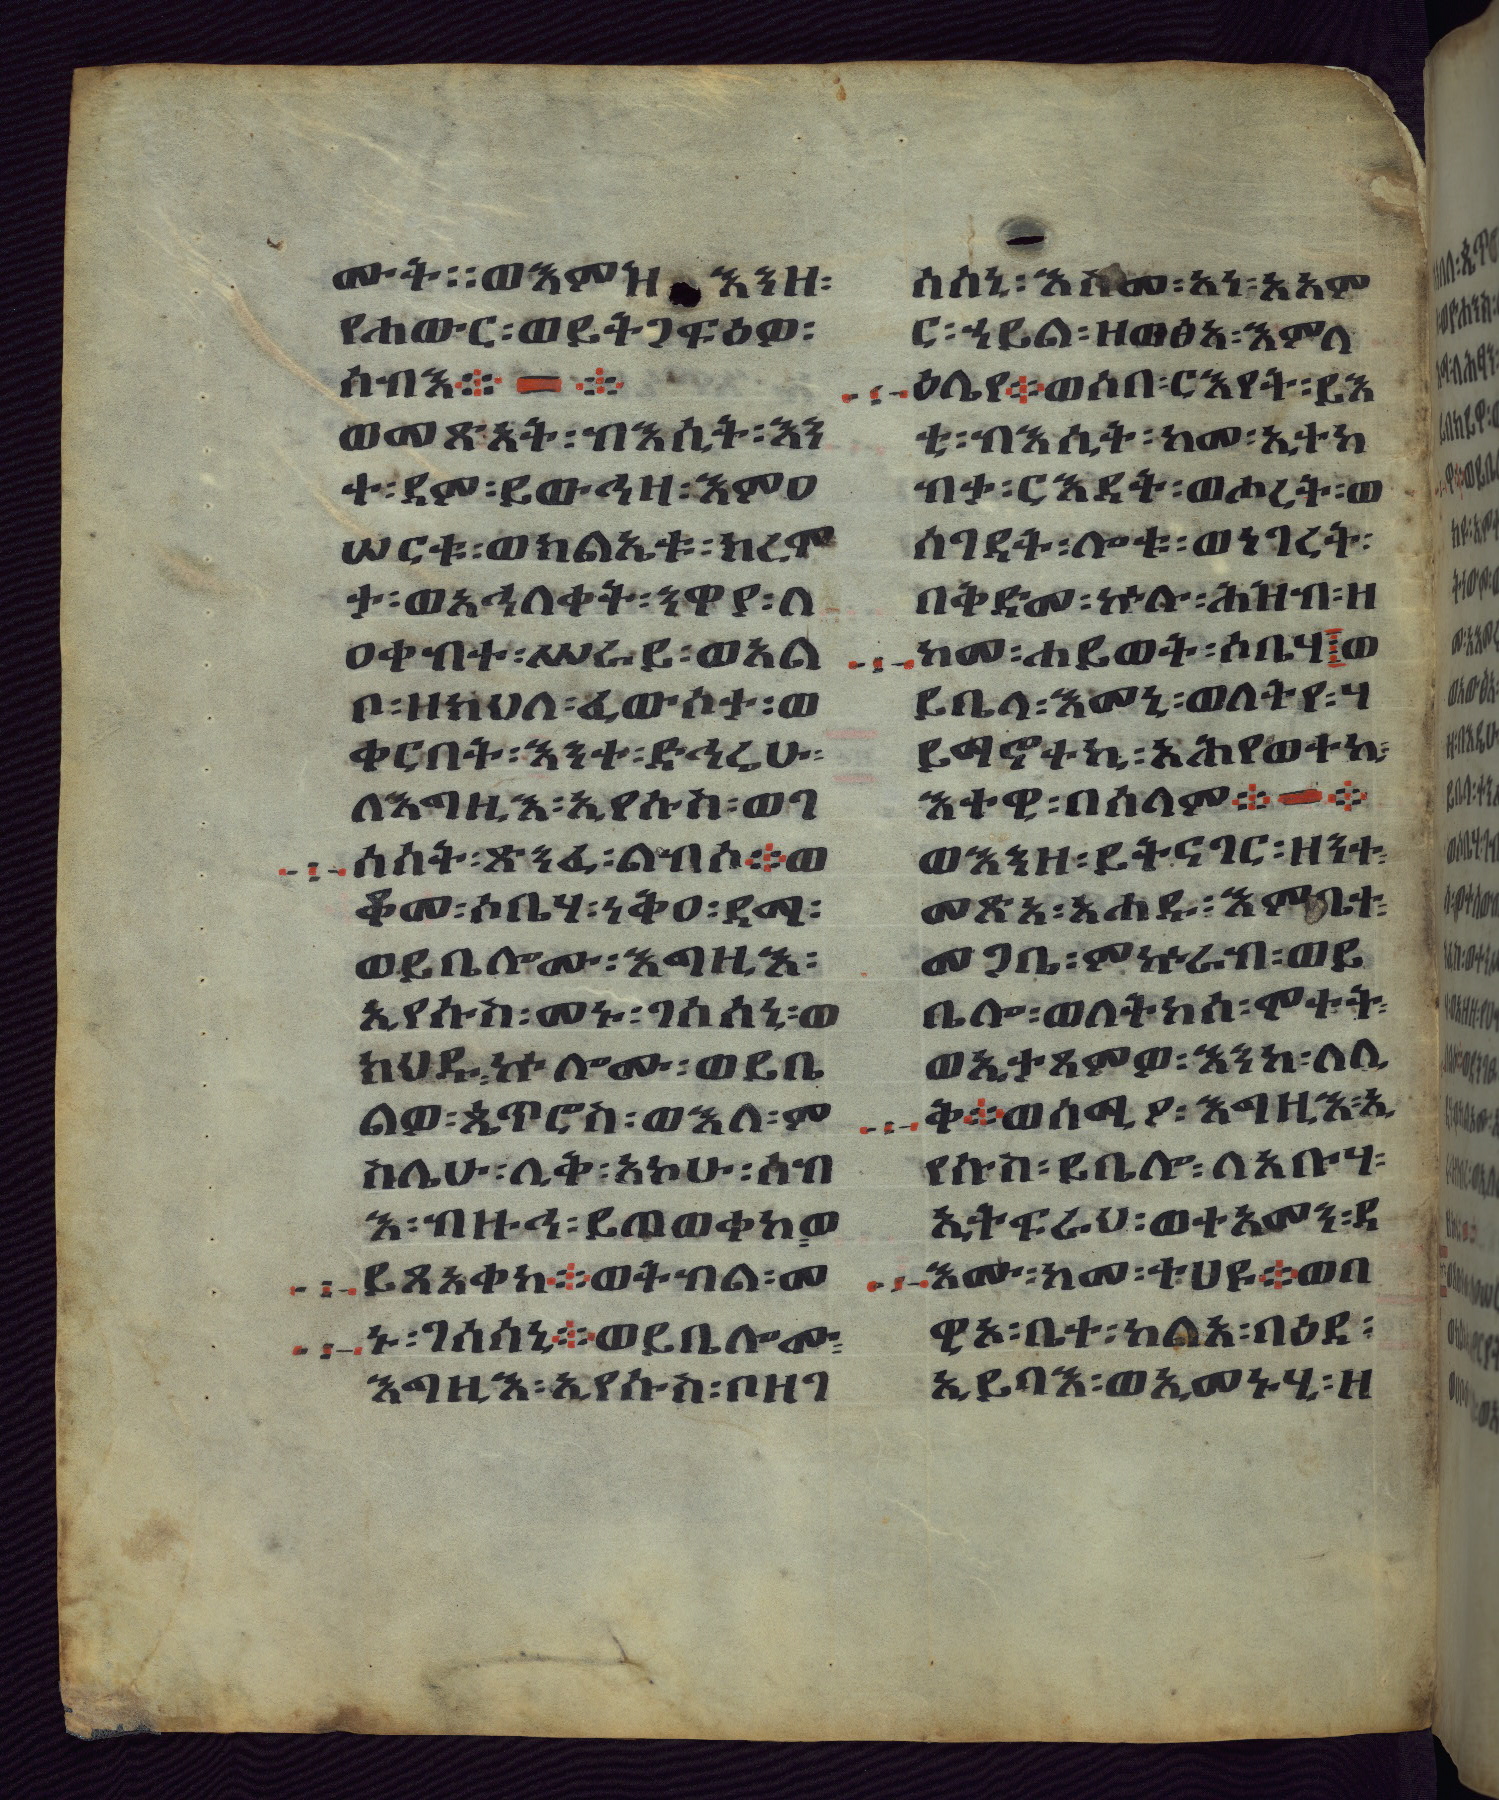 ሙት፡፡ወእምዝ እንዘ፡
የሐውር፡ወይትጋፍዕዎ፡
ሰብእ፨ — ፨
ወመጽአት፡ብእሲት፡እን
ተ፡ደም፡ይውኅዛ፡እምዐ
ሠርቱ፡ወክልኤቱ፡ክረም
ት፡ወአኅለቀት፡ንዋያ፡ለ
ዐቀብተ፡ሥራይ፡ወአል
ቦ፡ዘክህለ፡ፈውሶታ፡ወ
ቀርበት፡እንተ፡ድኅሬሁ፡
ለእግዚእ፡ኢየሱስ፡ወገ
ሰሰት፡ጽንፈ፡ልብሱ፨ወ
ቆመ፡ሶቤሃ፡ነቅዐ፡ደማ፡
ወይቤሎሙ፡እግዚእ፡
ኢየሱስ፡መኑ፡ገሰሰኒ፡ወ
ክህዱ፡ኵሎሙ፡ወይቤ
ልዎ፡ጴጥሮስ፡ወእለ፡ም
ስሌሁ፡ሊቅ፡አኮሁ፡ሰብ
እ፡ብዙኅ፡ይጠወቀከ፡ወ
ይጸአቀከ፨ወትብል፡መ
ኑ፡ገሰሰኒ፨ወይቤሎሙ፡
እግዚእ፡ኢየሱስ፡ቦዘገ
ሰሰኒ፡እስመ፡አነ፡አአም
ር፡ኀይል፡ዘወፅአ፡እምላ
ዕሌየ፨ወሶበ፡ርእየት፡ይእ
ቲ፡ብእሲት፡ከመ፡ኢተከ
ብተ፡ርእደት፡ወሖረት፡ወ
ሰገደት፡ሎቱ፡ወነገረት፡
በቅድመ፡ኵሉ፡ሕዝብ፡ዘ
ከመ፡ሐይወት፡ሶቤሃ፤ወ
ይቤላ፡እመኒ፡ወለትየ፡ሃ
ይማኖተኪ፡አሕየወተኪ፡
እተዊ፡በሰላም፨ — ፨
ወእንዘ፡ይትናገር፡ዘንተ፡
መጽአ፡አሐዱ፡እምቤተ፡
መጋቤ፡ምኵራብ፡ወይ
ቤሎ፡ወለትከሰ፡ሞተት፡
ወኢታጻምዎ፡እንከ፡ለሊ
ቅ፨ወሰሚዖ፡እግዚእ፡ኢ
የሱስ፡ይቤሎ፡ለአቡሃ፡
ኢትፍራህ፡ወተአመን፡ዳ
እሙ፡ከመ፡ተሀዩ፨ወበ
ዊኦ፡ቤተ፡ከልአ፡በዕደ፡
ኢይባእ፡ወኢመኑሂ፡ዘ